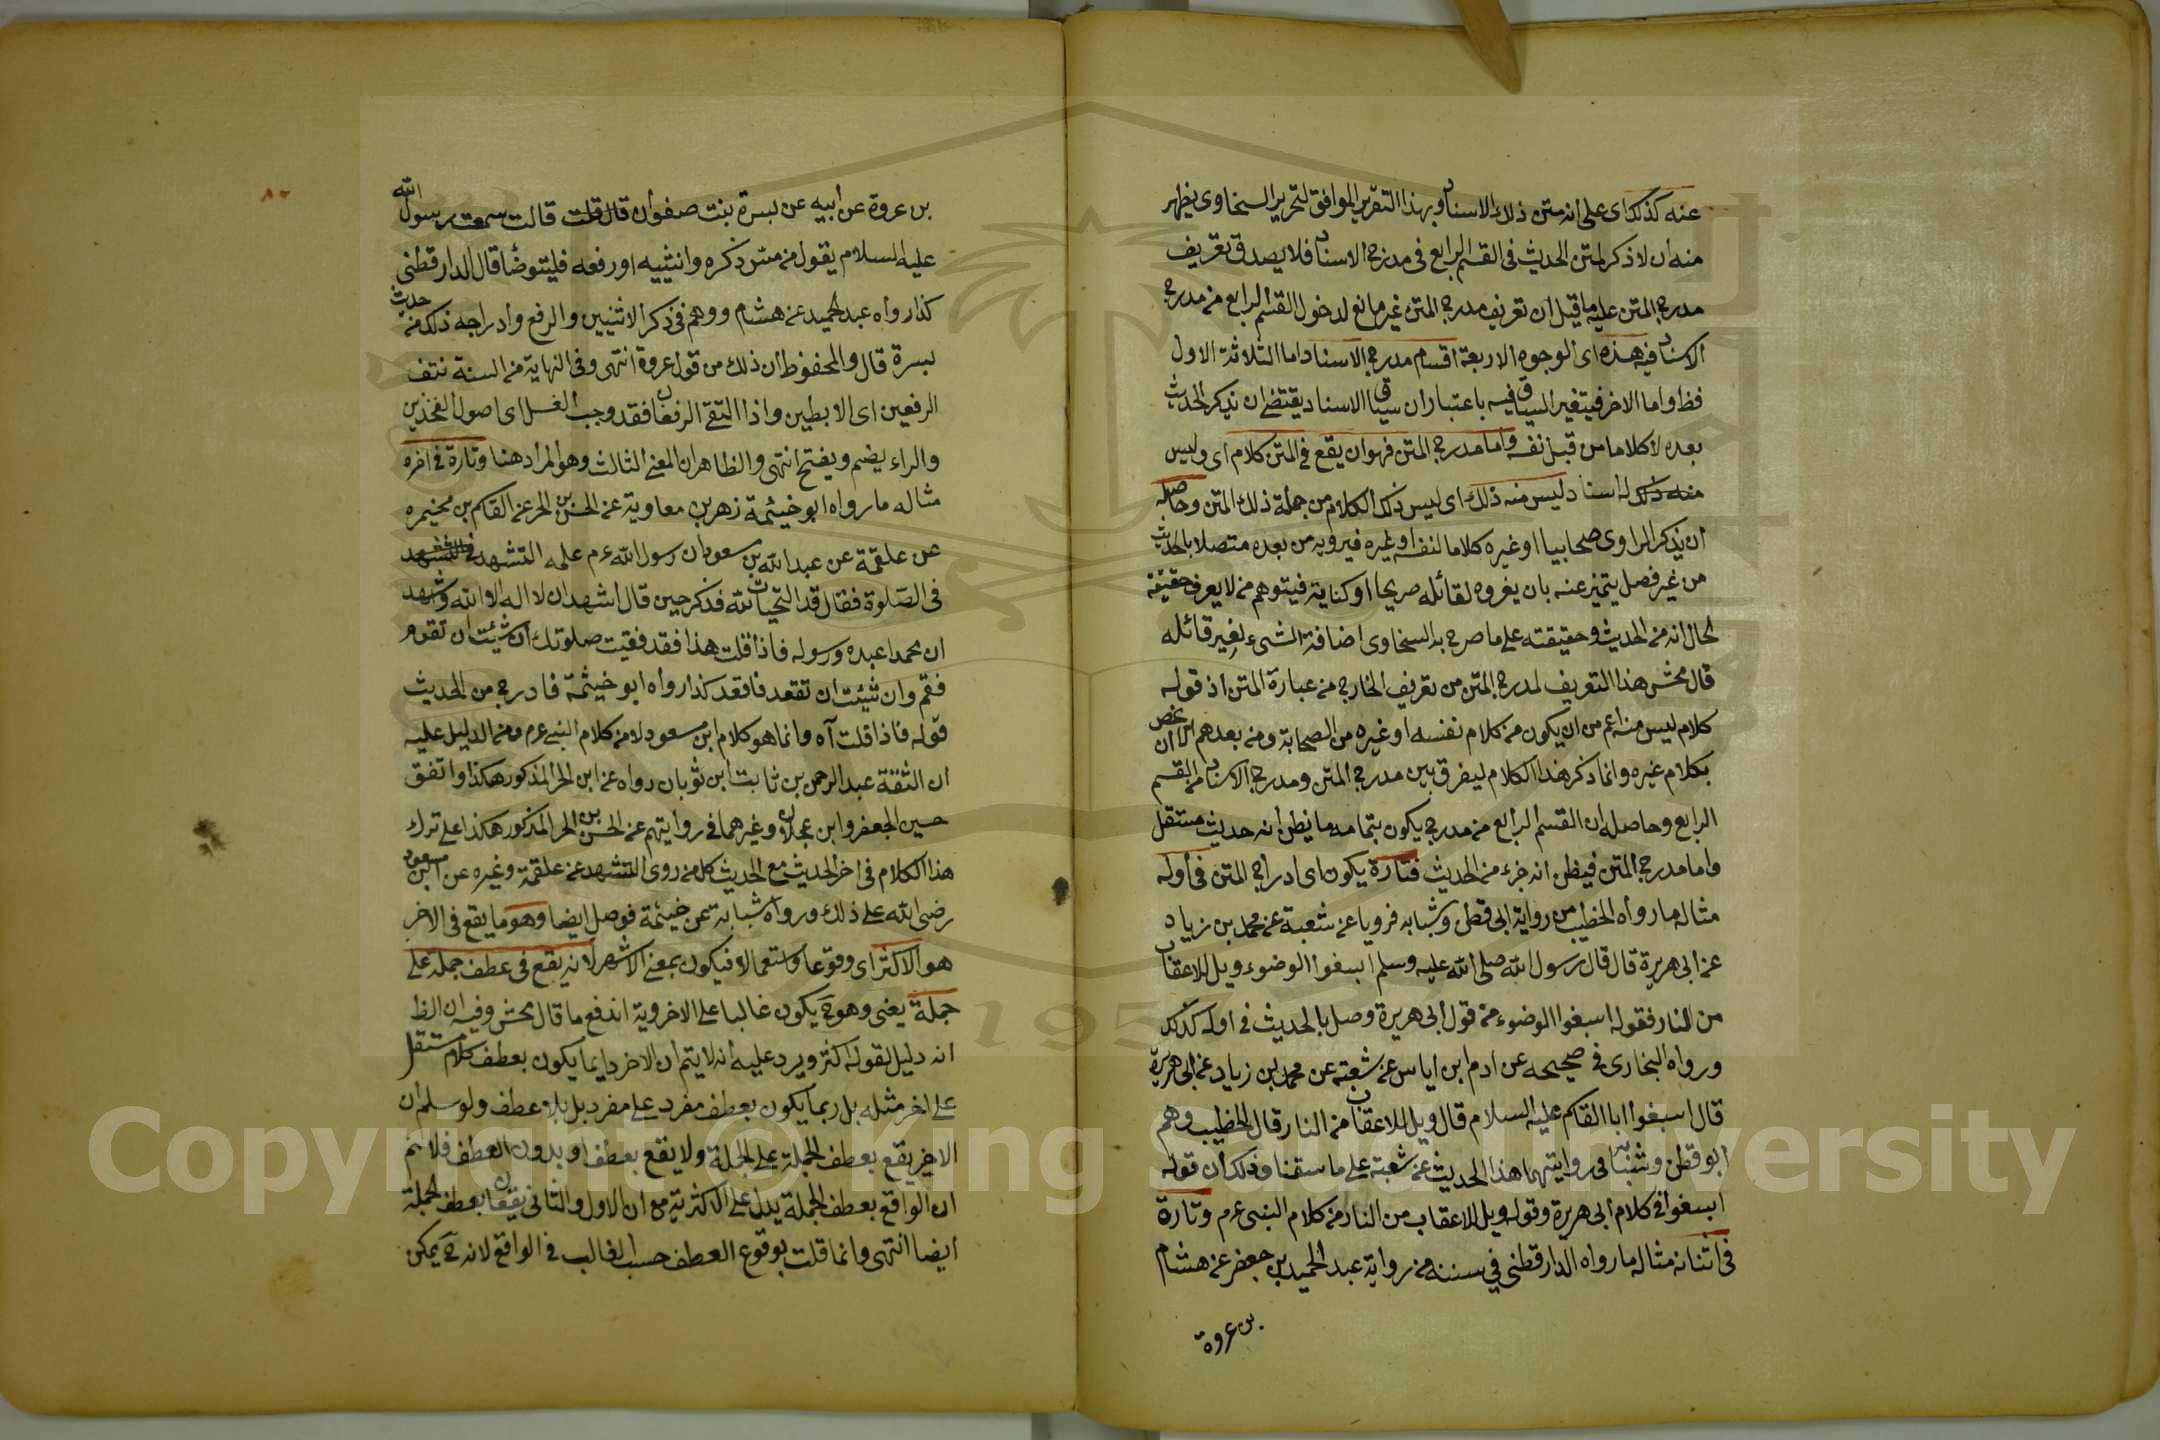 عنه كذلك اى على انه متن ذلك الاسناد وبهذا التقرير الموافق لتحرير السخاوى يظهر
منه ان لا ذكر لمتن الحديث فى القسم الرابع فى مدرج الاسناد فلا يصدق تعريف
مدرج المتن عليه ما قيل ان تعريف مدرج المتن غير مانع لدخول القسم الرابع من مدرج
الاسناد فيه هذه اى الوجوه الاربعة اقسام مدرج الاسناد اما الثلاثة الاول
فظ واما الاخر فيتغير السياق فيه باعتبار ان سياق الاسناد يقتضى ان يذكر الحديث
بعده لا كلاما من قبل نفسه واما مدرج المتن فهو ان يقع فى المتن كلام اى وليس
له اسناد ليس منه ذلك اى ليس ذلك الكلام من جملة ذلك المتن وحاصله
ان يذكر الراوى صحابيا او غيره كلاما لنفسه او غيره فيرويه من بعده متصلا بالحديث
من غير فصل يتميز عنه بان يغروه لقائله صريحا او كناية فيتوهم من لا يعرف حقيقة
الحال انه من الحديث وحقيقته على ما صرح به السخاوى اضافة الشىء لغير قائله
قال محش هذا التعريف لمدرج المتن من تعريف الخارج من عبارة المتن اذ قوله
كلام ليس منه اعم من ان يكون من كلام نفسه او غيره من الصحابة ومن بعدهم
بكلام غيره وانما ذكر هذا الكلام ليفرق بين مدرج المتن ومدرج الاسناد من القسم
الرابع وحاصله ان القسم الرابع من مدرج يكون بتمامه ما يظن انه حديث مستقل
واما مدرج المتن فيظن انه جزء من الحديث فتارة يكون اى ادراج المتن فى أوله
مثاله ما رواه الخطيب من رواية ابى قطن وشبابه فرويا عن شعبة عن محمد بن زياد
عن ابى هريرة قال قال رسول الله صلى الله عليه وسلم اسبغوا الوضوء ويل للاعقاب
من النار فقوله اسبغوا الوضوء من قول أبى هريرة وصل بالحديث فى اوله كذلك
ورواه البخارى فى صحيحه عن ادم ابن اياس عن شعبته عن محمد بن زياد عن ابى هريرة
قال اسبغوا ابا القاسم عليه السلام قال ويل للاعقاب من النار قال الخطيب وهم
ابو قطن وشبابة فى روايتهما هذا الحديث عن شعبة على ما سقنا وذلك ان قوله
اسبغوا فى كلام ابى هريرة وقوله ويل للاعقاب من النار من كلام النبى ءم وتارة
فى اثنائه مثاله ما رواه الدارقطنى فى سننه من رواية عبد الحميد بن جعفر عن هشام
بن عروة
٨٠
بن عروة عن أبيه عن بسرة بنت صفوان قال قلت قالت سمعت رسول الله
عليه السلام يقول من مس ذكره وانثييه او رفعه فليتوضأ قال الدارقطنى
كذا رواه عبد الحميد عن هشام ووهم فى ذكر الانثيين والرفع وادراجه ذلك من حديث
بسرة قال والمحفوظ ان ذلك من قول عروة انتهى وفى النهاية من السنة نتف
الرفعين اى الابطين واذا التقى الرفعان فقد وجب الغسل اى اصول الفخذين
والراء يضم ويفتح انتهى والظاهر ان المعنى الثالث وهو المراد هنا وتارة فى اخره
مثاله ما رواه ابو خيثمة زهر بن معاوية عن الحسن بن الحر عن القاسم بن مخيمره
عن علقمة عن عبد الله بن مسعود ان رسول الله ءم علمه التشهد
فى الصلوة فقال قد التحيات لله فذكر حين قال اشهد ان لا اله الا الله وشهد
ان محمدا عبده ورسوله فاذا قلت هذا فقد فقيت صلوتك ان شئت ان تقوم
فقم وان شئت ان تقعد فاقعد كذا رواه ابو خيثمة فادرج من الحديث
قوله فاذا قلت آه وانما هو كلام ابن مسعود لا من كلام النبى ءم ومن الدليل عليه
ان الثقة عبد الرحمن بن ثابت ابن ثوبان رواه عن ابن الحر المذكور هكذا واتفق
حسين الجعفر وابن عجلان وغيرهما فى روايتهم عن الحسن بن الحر المذكور هكذا على ترك
هذا الكلام فى اخر الحديث مع الحديث كل من روى التشهد عن علقمة وغيره عن ابن مسعود
رضى الله على ذلك ورواه شبابة عن خيثمة فوصل ايضا وهو ما يقع فى الاخر
هو الاكثر اى وقوعا واستعمالا فيكون بمعنى الاشهر لانه يقع فى عطف جملة على
جملة يعنى وهو ح يكون غالبا على الاخروية اندفع ما قال محش وفيه ان الظ
انه دليل لقوله اكثر ويرد عليه انه لا يتم ان الاخر دايما يكون بعطف كلام مستقل
على اخر مثله بل ربما يكون بعطف مفرد على مفرد بل بلا عطف ولو سلم ان
الاخير يقع بعطف الجملة على الجملة ولا يقع بعطف او بدون العطف فلا نم
ان الواقع بعطف الجملة يدل على الاكثرية مع ان الاول والثانى يقعان بعطف الجملة
ايضا انتهى وانما قلت بوقوع العطف حسب الغالب فى الواقع لانه ح يمكن
Copyright © King Saud University
195